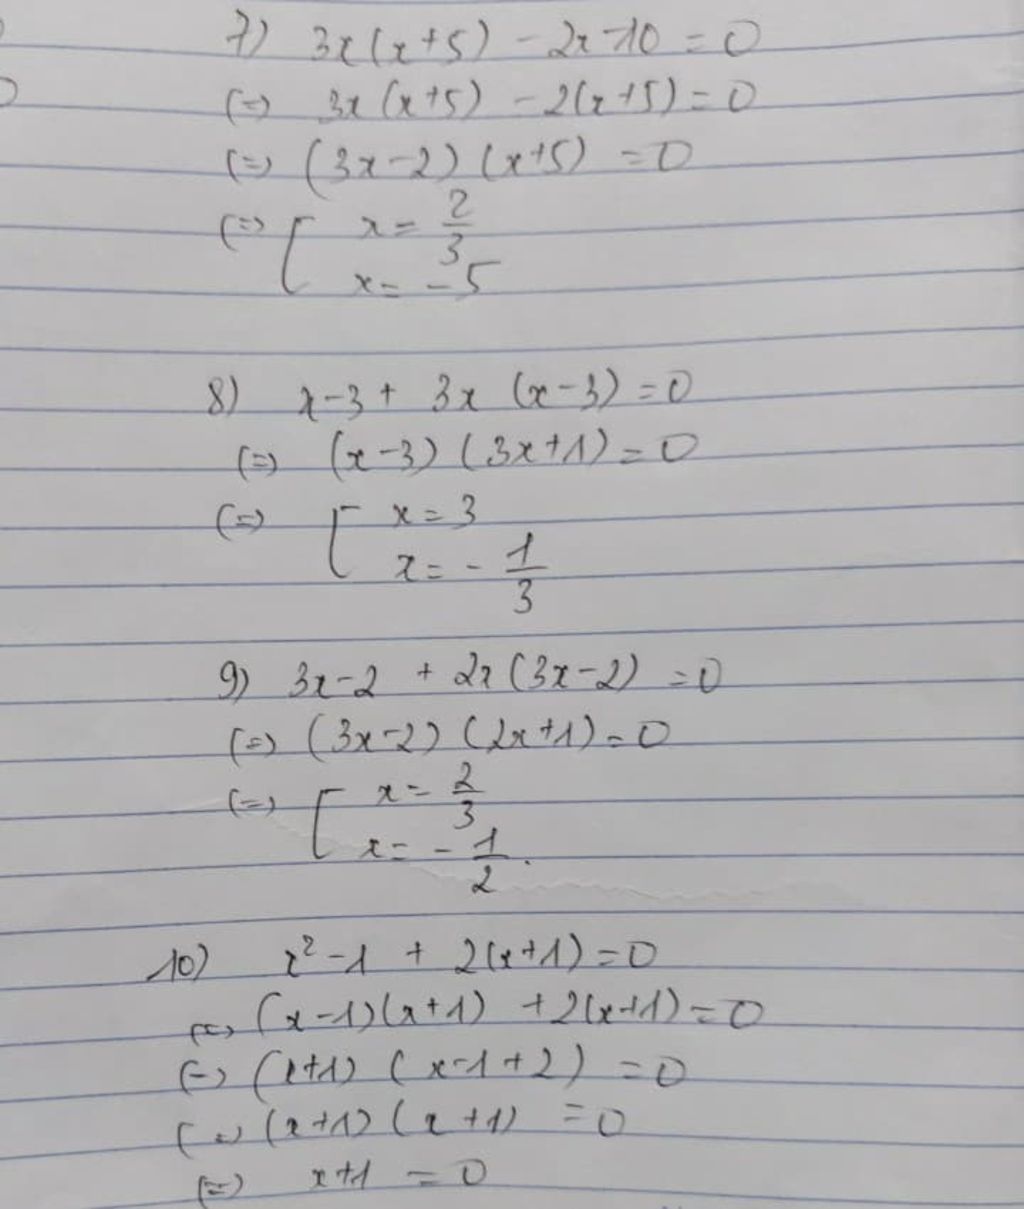 7) 3x(x+5) - 2x-10 = 0
(=) 3x(x+5) - 2(x+5) = 0
(=) (3x-2)(x+5) = 0
(=) [ x = 2/3
x = -5
8) x-3 + 3x(x-3) = 0
(=) (x-3)(3x+1) = 0
(=) [ x = 3
x = - 1/3
9) 3x-2 + 2x(3x-2) = 0
(=) (3x-2)(2x+1) = 0
(=) [ x = 2/3
x = - 1/2.
10) x²-1 + 2(x+1) = 0
(=) (x-1)(x+1) + 2(x+1) = 0
(=) (x+1)(x-1+2) = 0
(=) (x+1)(x+1) = 0
(=) x+1 = 0